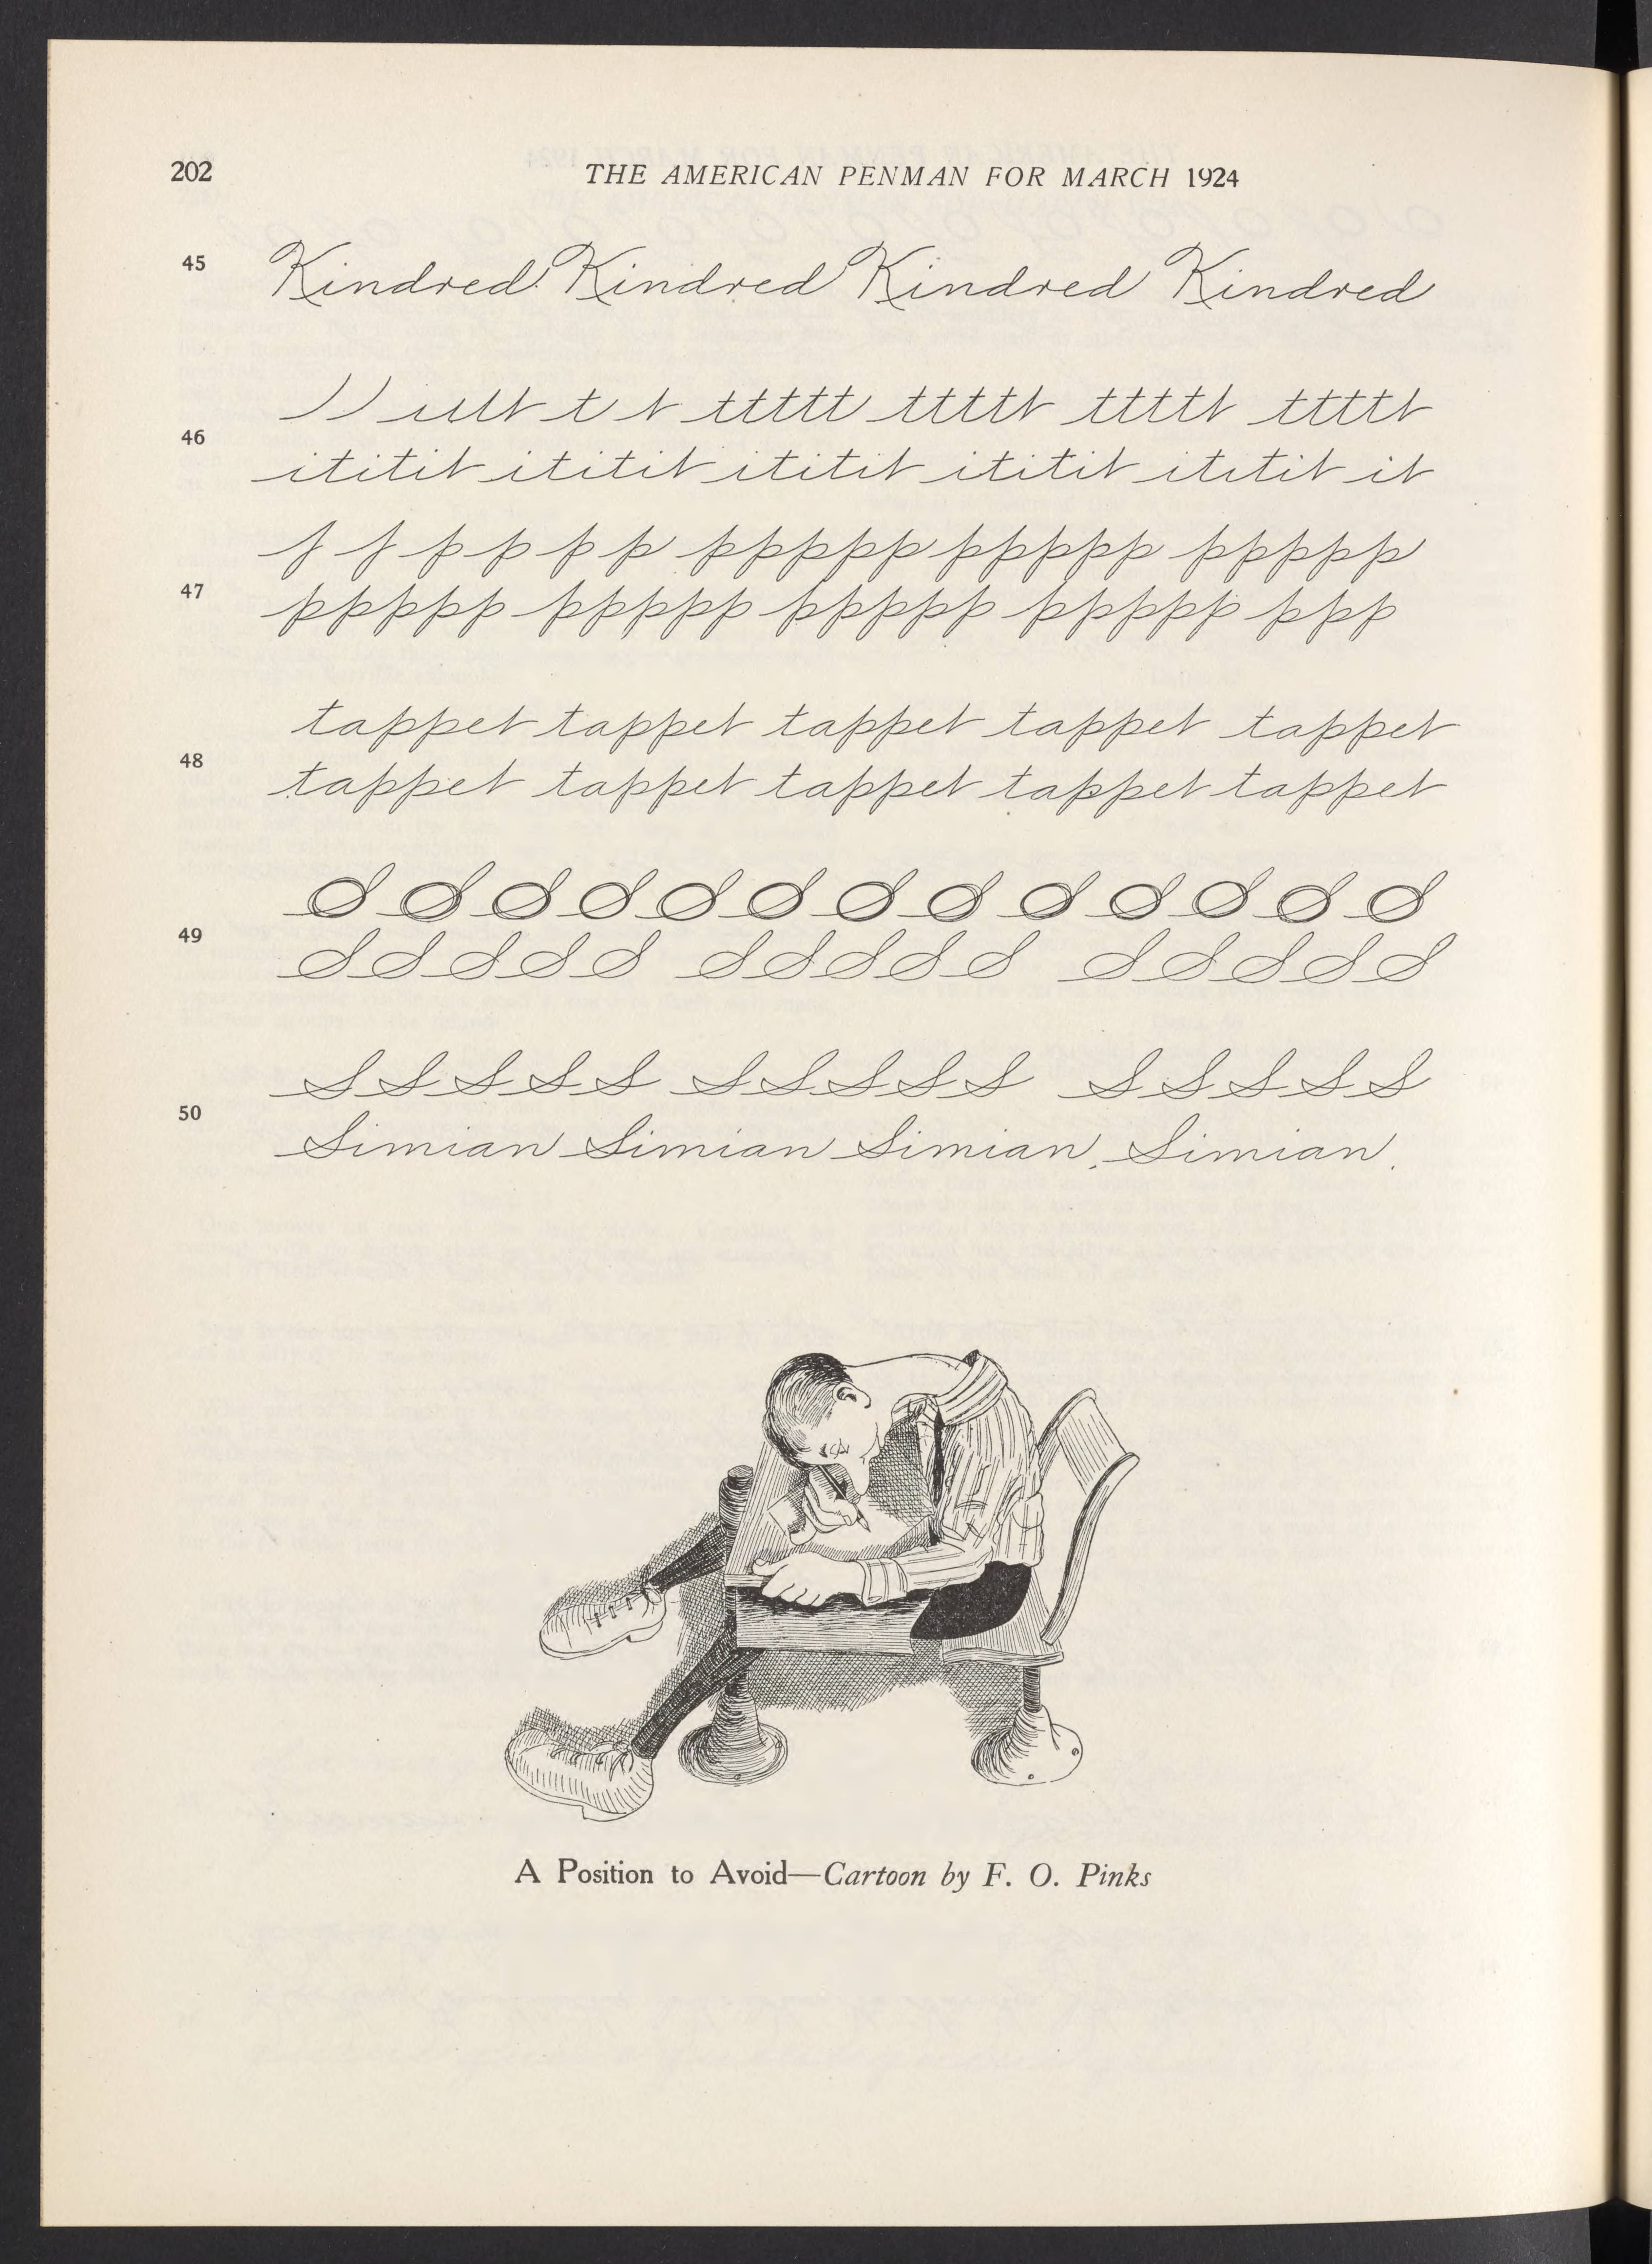 202
THE AMERICAN PENMAN FOR MARCH 1924
45
Kindred Kindred Kindred Kindred
46
t t ttttt ttttt ttttt ttttt
ititit ititit ititit ititit ititit it
47
p p p p ppppp ppppp ppppp
ppppp ppppp ppppp ppppp ppp
48
tappet tappet tappet tappet tappet
tappet tappet tappet tappet tappet
49
50
S S S S S S S S S S S S S S S
Simian Simian Simian, Simian.
A Position to Avoid—Cartoon by F. O. Pinks